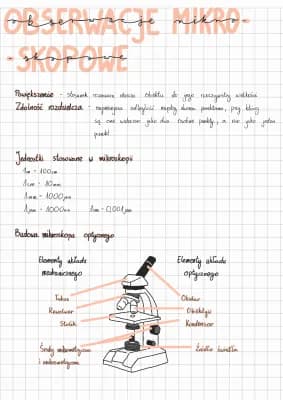 OBSERWACJE MIKRO-
obserwacje mikro-
- SKOPOWE
- skopowe
Powiększenie - stosunek rozmiaru obrazu obiektu do jego rzeczywistej wielkości
Zdolność rozdzielcza - najmniejsza odległość między dwoma punktami, przy której
są one widziane jako dwa osobne punkty, a nie jako jeden
punkt
Jednostki stosowane w mikroskopii
1m - 100cm
1cm - 10mm
1mm - 1000µm
1µm - 1000nm 1nm - 0,001µm
Budowa mikroskopu optycznego
Elementy układu
mechanicznego
Elementy układu
optycznego
Tubus
Okular
Rewolwer
Obiektyw
Stolik
Kondensor
Śruby makrometryczna
i mikrometryczna
Źródło światła